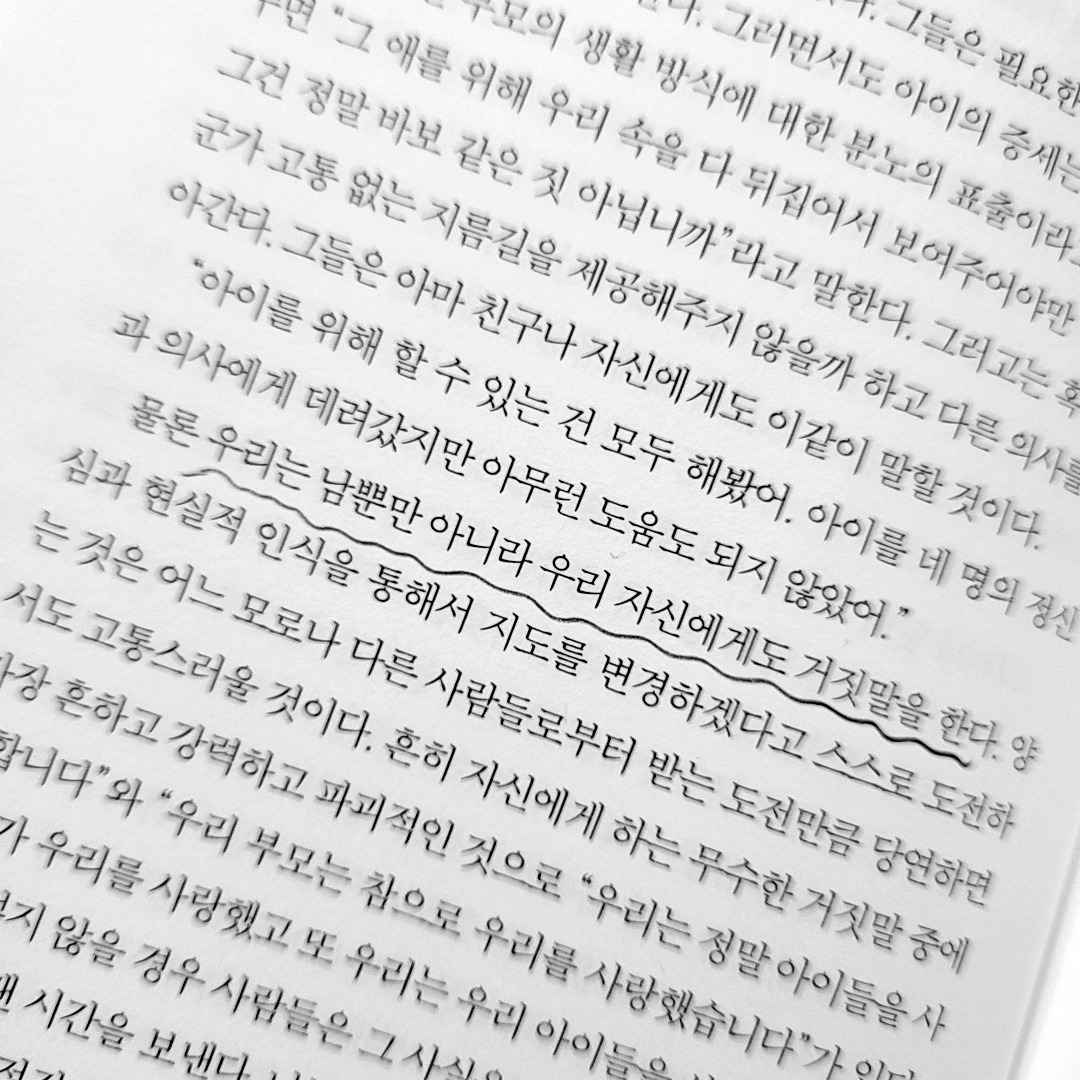 그들은 필요한
그러면서도 아이의 증세는
부모의 생활 방식에 대한 분노의 표출이라
"그 애를 위해 우리 속을 다 뒤집어서 보여주어야만
그건 정말 바보 같은 짓 아닙니까"라고 말한다. 그러고는 혹
군가 고통 없는 지름길을 제공해주지 않을까 하고 다른 의사를
아간다. 그들은 아마 친구나 자신에게도 이같이 말할 것이다.
"아이를 위해 할 수 있는 건 모두 해봤어. 아이를 네 명의 정신
과 의사에게 데려갔지만 아무런 도움도 되지 않았어."
물론 우리는 남뿐만 아니라 우리 자신에게도 거짓말을 한다. 양
심과 현실적 인식을 통해서 지도를 변경하겠다고 스스로 도전하
는 것은 어느 모로나 다른 사람들로부터 받는 도전만큼 당연하면
서도 고통스러울 것이다. 흔히 자신에게 하는 무수한 거짓말 중에
가장 흔하고 강력하고 파괴적인 것으로 "우리는 정말 아이들을 사
합니다"와 "우리 부모는 참으로 우리를 사랑했습니다"가 있다.
가 우리를 사랑했고 또 우리는 우리 아이들을
않을 경우 사람들은 그 사실을
시간을 보낸다.